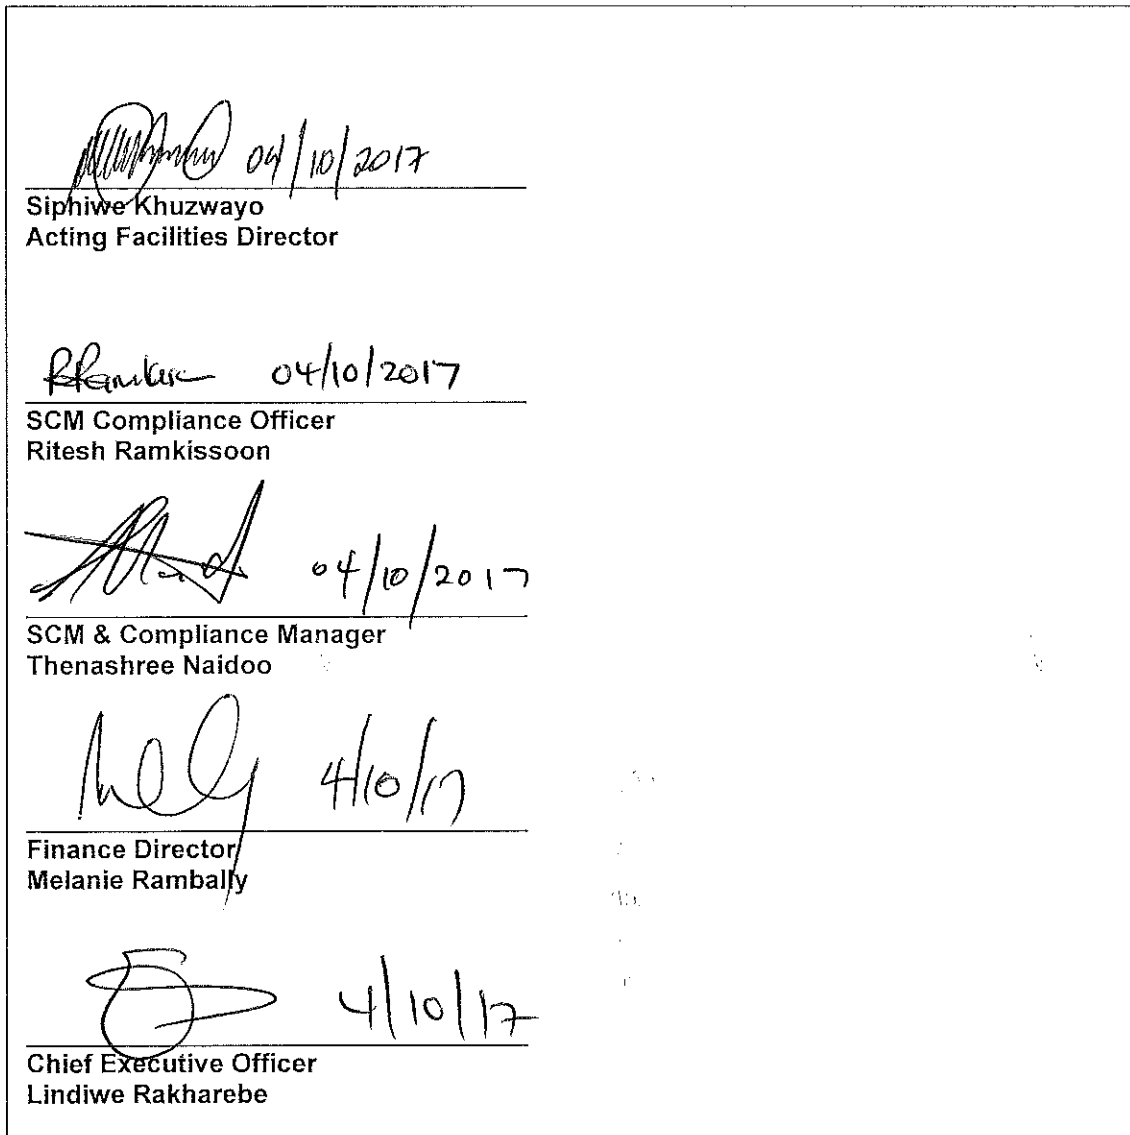 04/10/2017
Siphiwe Khuzwayo
Acting Facilities Director
04/10/2017
SCM Compliance Officer
Ritesh Ramkissoon
04/10/2017
SCM & Compliance Manager
Thenashree Naidoo
4/10/17
Finance Director
Melanie Rambally
4/10/17
Chief Executive Officer
Lindiwe Rakharebe